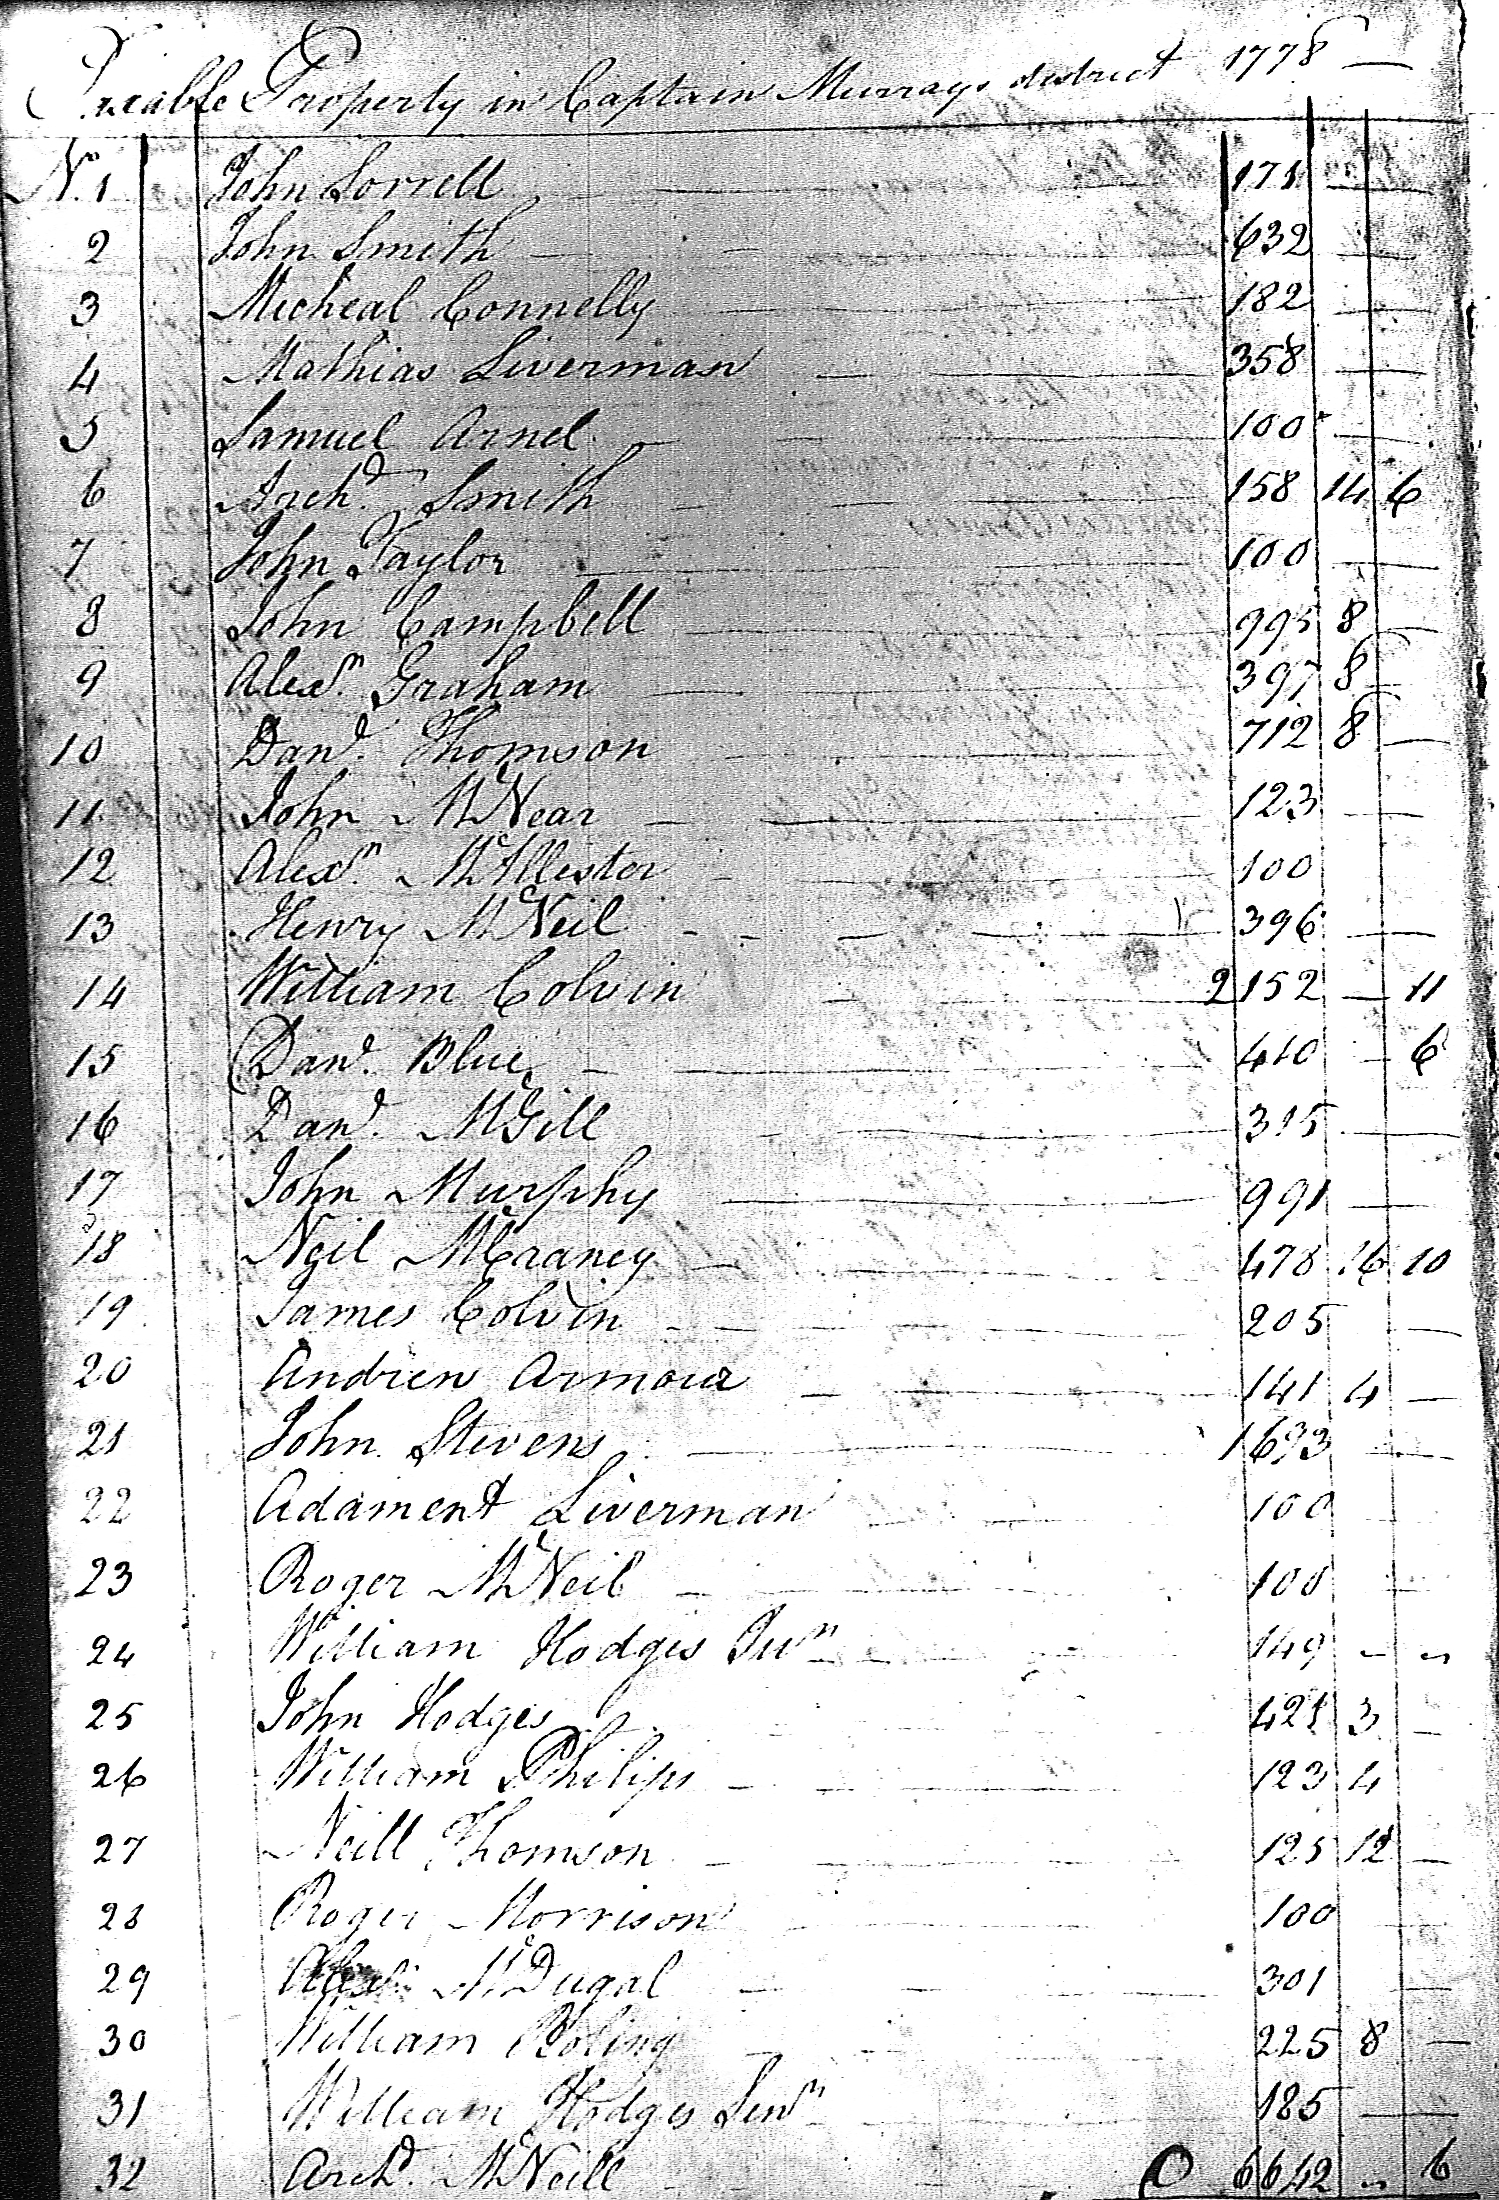 Taxable Property in Captain Murrays district 1778 —
No. 1 John Sorrell 171 — —
2 John Smith 632 — —
3 Micheal Connelly 182 — —
4 Mathias Liverman 358 — —
5 Samuel Arnel 100 — —
6 Archd. Smith 158 14 6
7 John Taylor 100 — —
8 John Campbell 995 8 —
9 Alexr. Graham 397 8 —
10 Danl. Thomson 712 8 —
11 John McNear 123 — —
12 Alexr. McAllester 100 — —
13 Henry McNeil 396 — —
14 William Colvin 2152 — 11
15 Danl. Blue 410 — 6
16 Danl. McGill 315 — —
17 John Murphy 991 — —
18 Neil McCraney 478 16 10
19 James Colvin 205 —
20 Andrew Armour 141 4 —
21 John Stevens 1693 — —
22 Adament Liverman 100
23 Roger McNeil 100 —
24 William Hodges Junr 149 — —
25 John Hodges 421 3 —
26 William Philips 123 4
27 Neill Thomson 125 12 —
28 Roger Morrison 100
29 Alexr. McDugal 301 —
30 William Boling 225 8 —
31 William Hodges Senr 185 — —
32 Archd. McNeill 6642 — 6